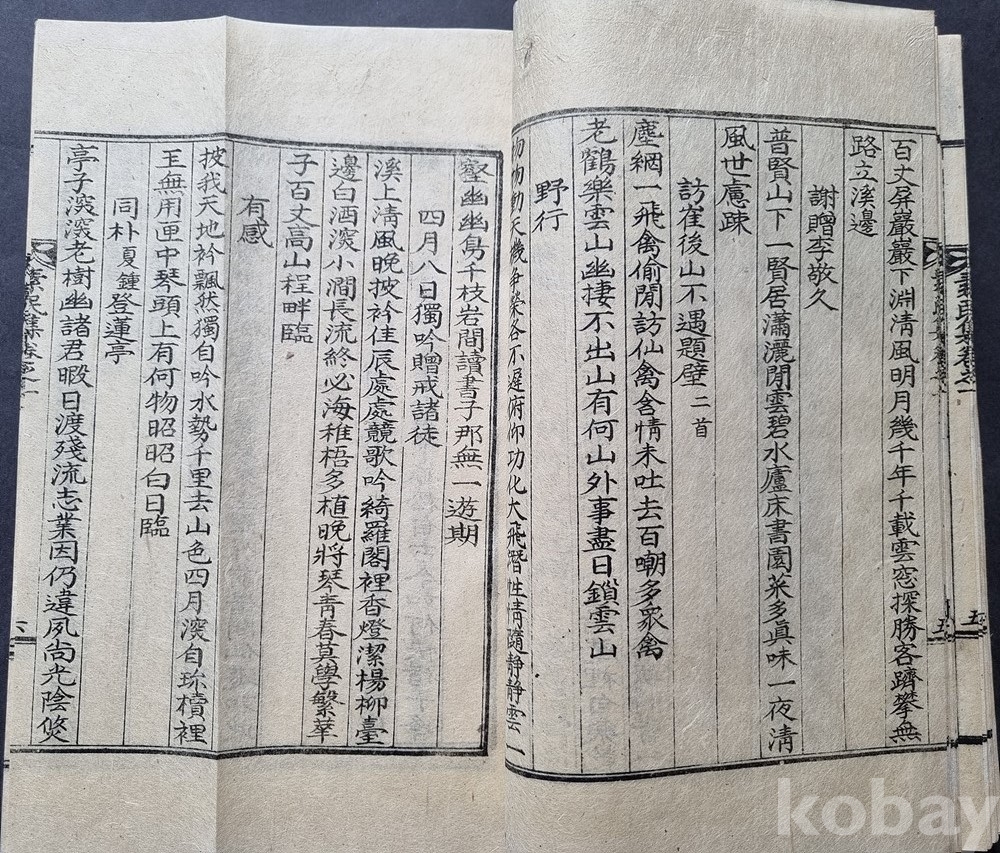 百丈屛巖巖下淵淸風明月幾千年千載雲窓探勝客躋攀無
路立溪邊
謝贈李敬久
普賢山下一賢居瀟灑閒雲碧水廬床書園菜多眞味一夜淸
風世慮疎
訪崔後山不遇題壁二首
塵網一飛禽偷閒訪仙禽含情未吐去百嘲多衆禽
老鶴樂雲山幽捿不出山有何山外事盡日鎖雲山
野行
物物動天機爭榮各不遲府仰功化大飛潛性情隨静静雲一
壑幽幽鳥千枝岩間讀書子那無一遊期
四月八日獨吟贈戒諸徒
溪上淸風晚披衿佳辰處處競歌吟綺羅閣裡香燈潔楊柳臺
邊白洒深小澗長流終必海稚梧多植晚將琴靑春莫學繁華
子百丈高山程畔臨
有感
披我天地衿飄然獨自吟水勢千里去山色四月深自珎櫝裡
玉無用匣中琴頭上有何物昭昭白日臨
同朴夏鍾登蓮亭
亭子深深老樹幽諸君暇日渡殘流志業因仍違夙尙光陰倐
五
六
kobay